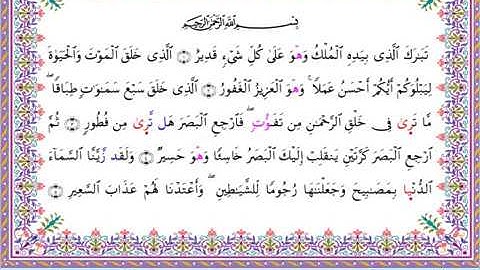 بِسْمِ ٱللَّهِ ٱلرَّحْمَٰنِ ٱلرَّحِيمِ
تَبَٰرَكَ ٱلَّذِى بِيَدِهِ ٱلْمُلْكُ وَهْوَ عَلَىٰ كُلِّ شَىْءٍ قَدِيرٌ ١ ٱلَّذِى خَلَقَ ٱلْمَوْتَ وَٱلْحَيَوٰةَ
لِيَبْلُوَكُمْ أَيُّكُمْ أَحْسَنُ عَمَلًا ۚ وَهْوَ ٱلْعَزِيزُ ٱلْغَفُورُ ٢ ٱلَّذِى خَلَقَ سَبْعَ سَمَٰوَٰتٍ طِبَاقًا ۖ
مَّا تَرَىٰ فِى خَلْقِ ٱلرَّحْمَٰنِ مِن تَفَوُّتٍ ۖ فَٱرْجِعِ ٱلْبَصَرَ هَل تَّرَىٰ مِن فُطُورٍ ٣ ثُمَّ
ٱرْجِعِ ٱلْبَصَرَ كَرَّتَيْنِ يَنقَلِبْ إِلَيْكَ ٱلْبَصَرُ خَاسِئًا وَهْوَ حَسِيرٌ ٤ وَلَقَدْ زَيَّنَّا ٱلسَّمَآءَ
ٱلدُّنْيَا بِمَصَٰبِيحَ وَجَعَلْنَٰهَا رُجُومًا لِّلشَّيَٰطِينِ ۖ وَأَعْتَدْنَا لَهُمْ عَذَابَ ٱلسَّعِيرِ ٥